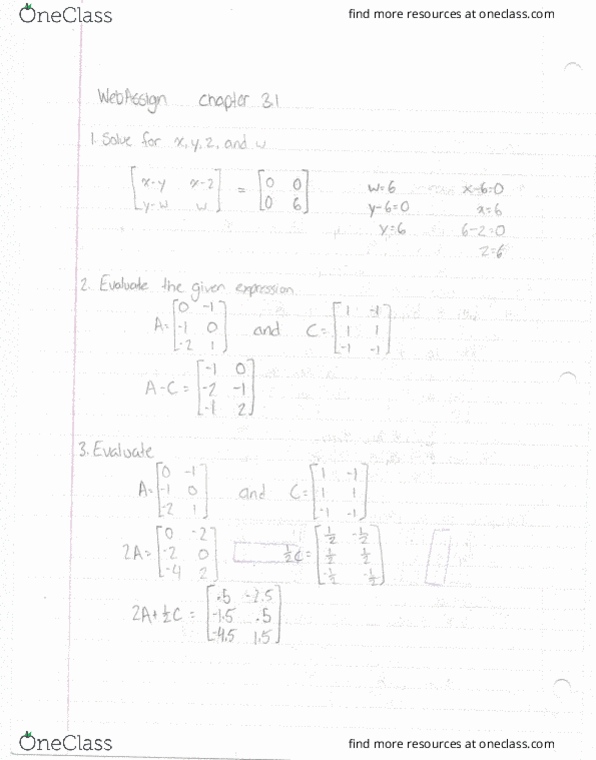 OneClass find more resources at oneclass.com
WebAssign chapter 3.1
1. Solve for x, y, z, and w
[x-y x-z] = [0 0] w=6 x-6=0
[y-w w] [0 6] y-6=0 x=6
y=6 6-z=0
z=6
2. Evaluate the given expression
A= [0 -1] and C= [1 -1]
[-1 0] [1 1]
[-2 1] [-1 -1]
A-C= [-1 0]
[-2 -1]
[-1 2]
3. Evaluate
A= [0 -1] and C= [1 -1]
[-1 0] [1 1]
[-2 1] [-1 -1]
2A= [0 -2] ½C= [½ -½]
[-2 0] [½ ½]
[-4 2] [-½ -½]
2A+½C = [.5 -2.5]
[-1.5 .5]
[-4.5 1.5]
OneClass find more resources at oneclass.com